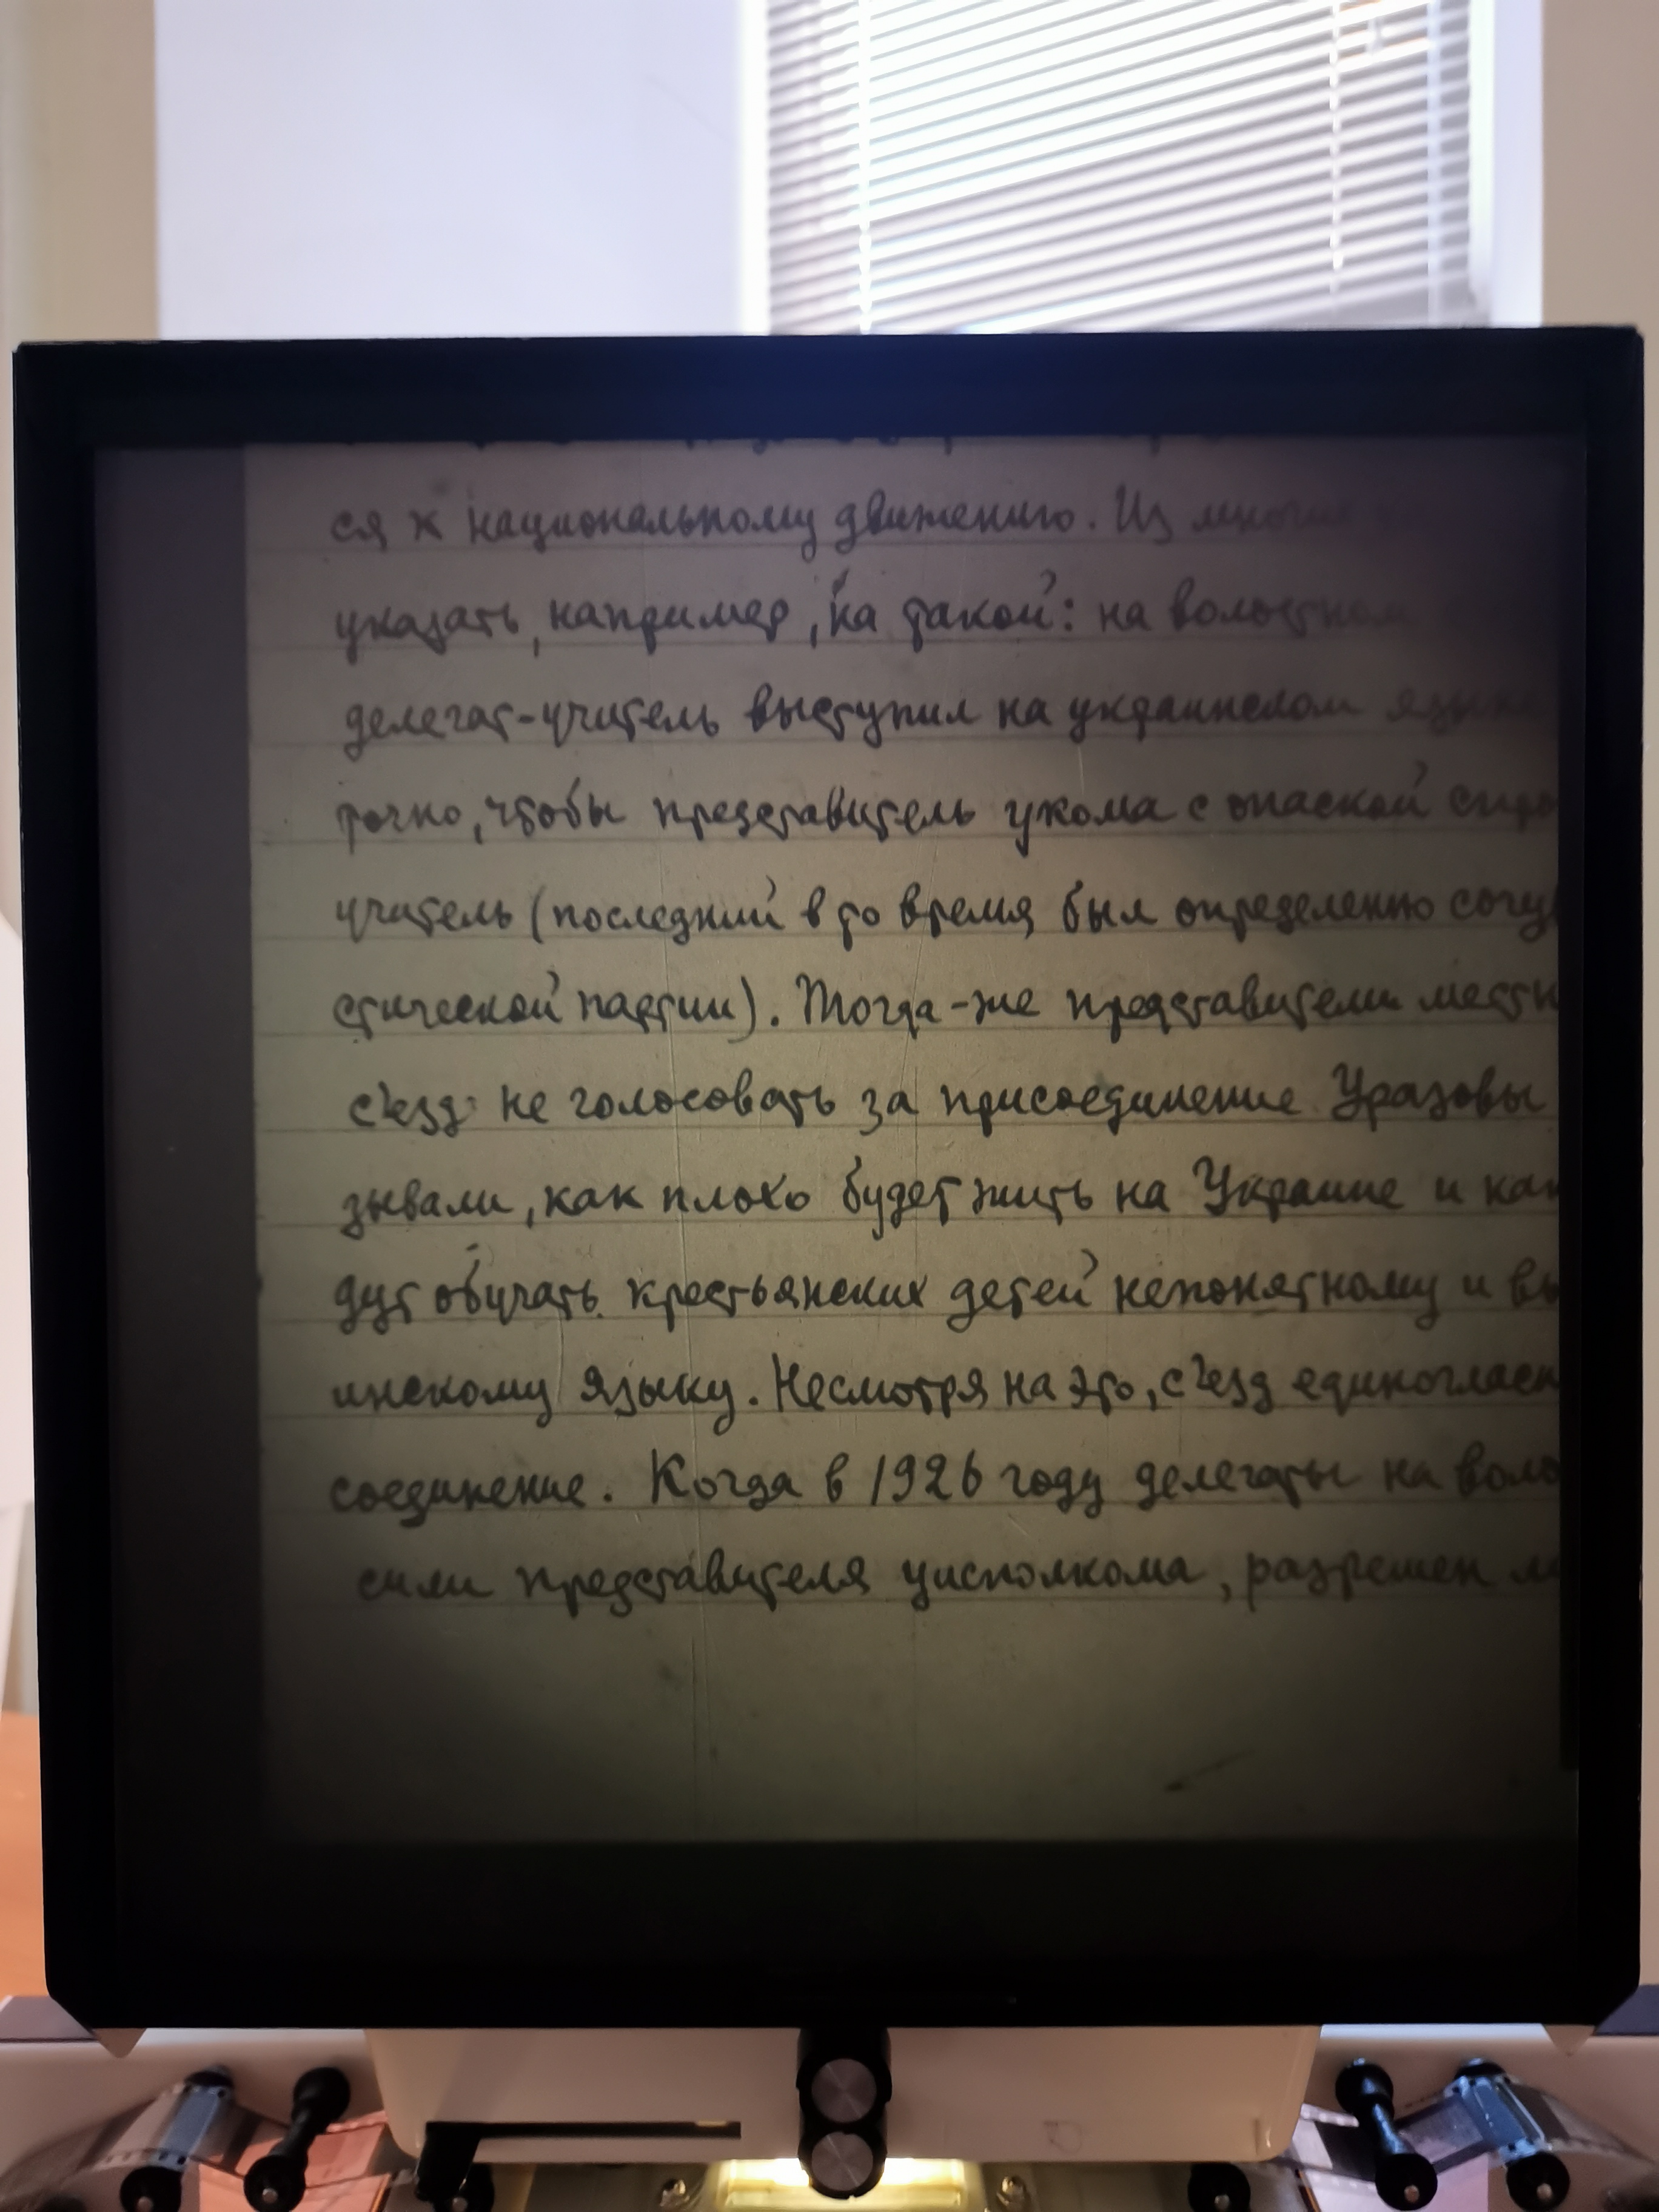 ся к национальному движению. Из многих
указать, например, на такой: на волостном
делегат-учитель выступил на украинском языке
точно, чтобы представитель укома с опаской спро
учитель (последний в то время был определенно сочу
стической партии). Тогда-же представители местн
с'езд не голосовать за присоединение Уразовы
зывали, как плохо будет жить на Украине и как
дут обучать крестьянских детей непонятному и вы
инскому языку. Несмотря на это, с'езд единогласн
соединение. Когда в 1926 году делегаты на воло
сили представителя уисполкома, разрешен ли